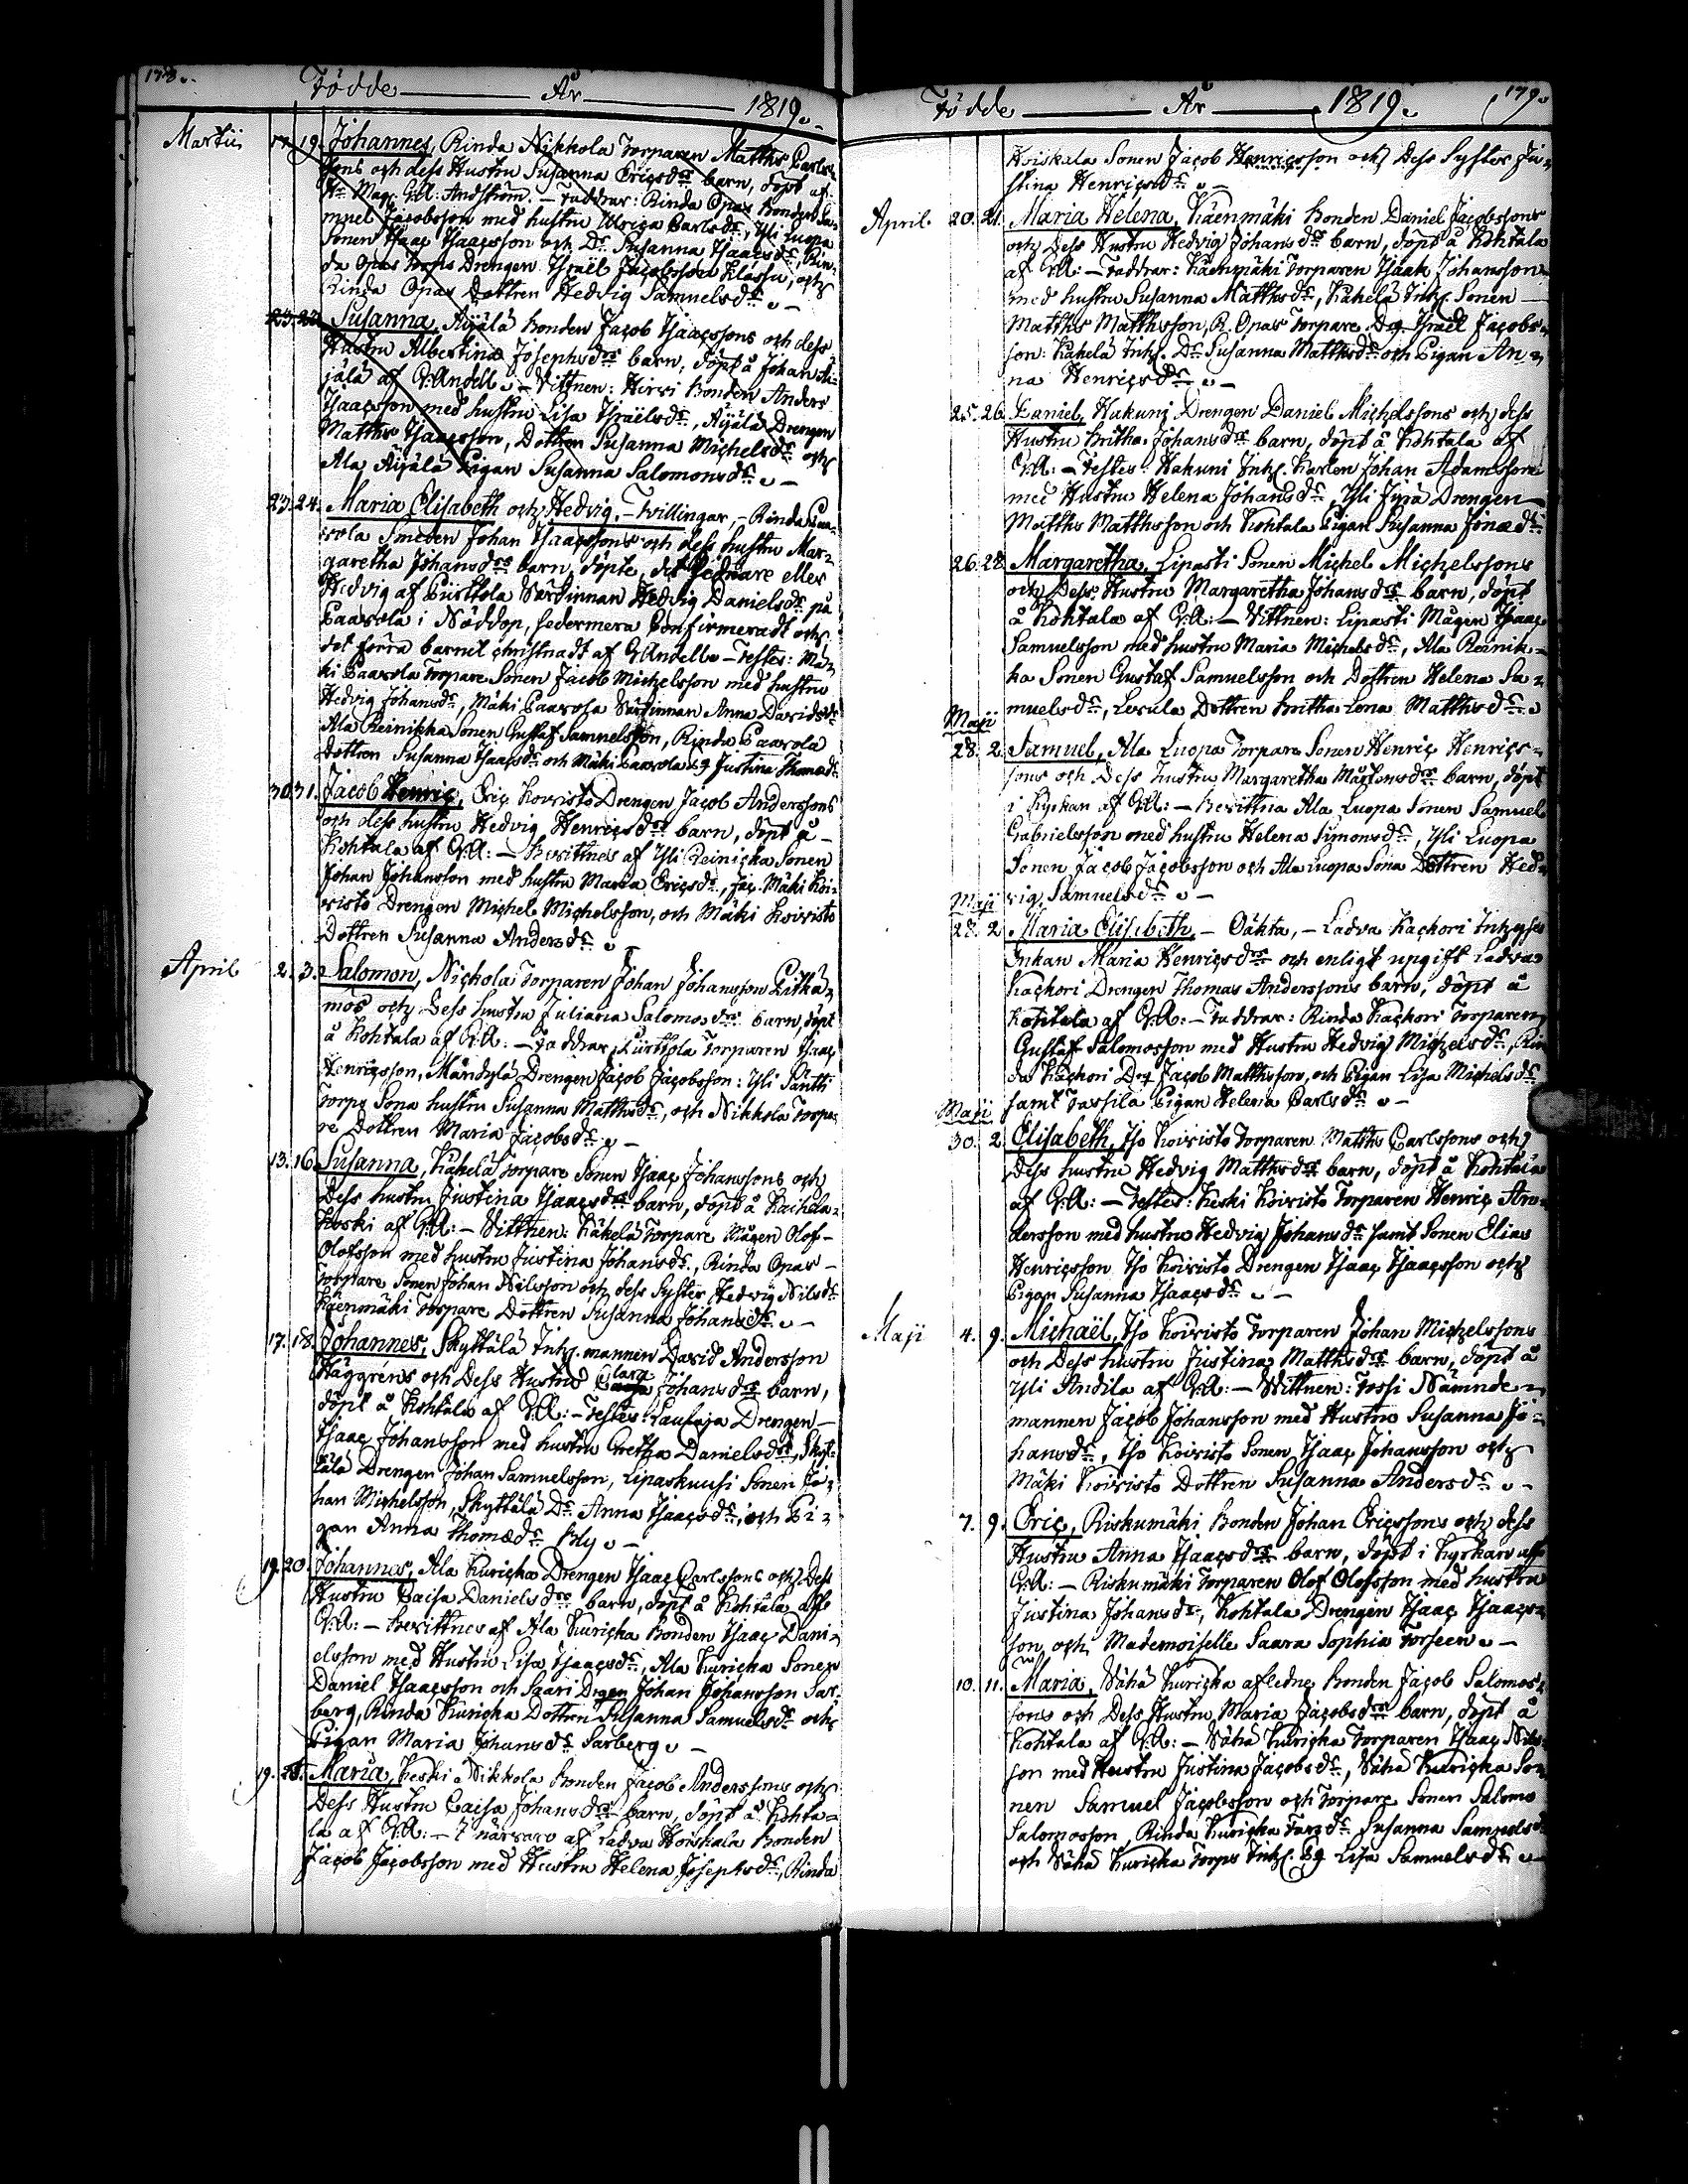 178.
Födde År 1819.
Martii 17. 19. Johannes, Rinda Nikkola Torparen Matths Carls-
sons och dess Hustru Susanna Ericsdrs barn, döpt af
Hr Mag. G.A: Andström. - Faddrar: Rinda Opas Bonden Sa-
muel Jacobsson med hustru Ulrica Carlsdr, Yli Luopa
Sonen Isaac Isaacsson och Dr Susanna Isaacsdr, Rin-
da Opas Torps Drengen Israël Jacobsson Klåssu, och
Rinda Opas Dottren Hedvig Samuelsdr.-
23. Susanna, Äijälä Bonden Jacob Isaacssons och dess
Hustru Albertina Josephsdrs barn, döpt å Johan Äi-
jälä af G:Andell.- Vittnen: Hirvi Bonden Anders
Isaacsson med hustru Lisa Israëlsdr, Äijälä Drengen
Matths Isaacsson, Dottren Susanna Michelsdr och
Ala Äijälä Pigan Susanna Salomonsdr.-
23. 24. Maria Elisabeth och Hedvig.- Tvillingar,- Rinda Paa-
vola Smeden Johan Isaacssons och dess hustru Mar-
garetha Johansdrs barn, döpte, det sednare eller
Hedvig af Pürttola Värdinnan Hedvig Danielsdr på
Paavola i Nöddop, sedermera Confirmeradt och
det förra barnet christnadt af G:Andell.- Testes: Mä-
ki Paavola Torpare Sonen Jacob Michelsson med hustru
Hedvig Johansdr, Mäki Paavola Värdinnan Anna Davidsdr
Ala Reinikka Sonen Gustaf Samuelsson, Rinda Paavola
Dottren Susanna Isaacsdr och Mäki Paavola Pg Justina Thomædr
30. 31. Jacob Henric, Eric Koivisto Drengen Jacob Anderssons
och dess hustru Hedvig Henricsdrs barn, döpt å
Kohtala af G:A: - Bevittnes af Yli Reinicka Sonen
Johan Johansson med hustru Maria Ericsdr, Jac. Mäki Koi-
visto Drengen Michel Michelsson, och Mäki Koivisto
Dottren Susanna Andersdr.-
April 2. 3. Salomon, Nickola Torparen Johan Johansson Pitkä-
mös och Dess hustru Juliana Salomosdrs barn, döpt
å Kohtala af G:A: - Faddrar, Pürttola Torparen Isaac
Henricsson, Mändylä Drengen Jacob Jacobsson: Yli Säntti
Torps Sona hustru Susanna Matthsdr, och Nikkola Torpa-
re Dottren Maria Jacobsdr.-
13. 16. Susanna, Kähelä Torpare Sonen Isaac Johanssons och
Dess hustru Justina Isaacsdrs barn, döpt å Kachela-
koski af G:A: - Vittnen: Kähelä Torpare Mågen Olof
Olofsson med hustru Justina Johansdr, Rinda Opas
Torpare Sonen Johan Nilsson och dess Syster Hedvig Nilsdr
Käenmäki Torpare Dottren Susanna Johansdr.-
17. 18. Johannes, Skyttälä Inh. mannen David Andersson
Häggrens och Dess Hustru Clara Johansdrs barn,
döpt å Kohtala af G:A: - Testes: Laulaja Drengen
Isaac Johansson med hustru Gretha Danielsdr, Skyt-
tälä Drengen Johan Samuelsson, Lipaskuusi Sonen Jo-
han Michelsson, Skyttälä Dr Anna Isaacsdr, och Pi-
gan Anna Thomædr Bly.-
19. 20. Johannes, Ala Kuricka Drengen Isaac Carlssons och Dess
Hustru Caisa Danielsdrs barn, döpt å Kohtala af
G:A: - Bevittnes af Ala Kuricka Bonden Isaac Dani-
elsson med Hustru Lisa Isaacsdr, Ala Kuricka Sonen
Daniel Isaacsson och Saari Drgen Johan Johansson Sar-
berg, Rinda Kuricka Dottren Susanna Samuelsdr och
Pigan Maria Johansdr Sarberg.-
19. Maria, Keski Nikkola Bonden Jacob Anderssons och
Dess Hustru Caisa Johansdrs barn, döpt å Kohta-
la af G:A: - I närvaro af Ladva Koiskala Bonden
Jacob Jacobsson med Hustru Helena Josephsdr, Rinda
Födde År 1819. 179.
Koiskala Sonen Jacob Henricsson och Dess Syster Ju-
stina Henricsdr.-
April. 20. 21. Maria Helena, Käenmäki Bonden Daniel Jacobssons
och Dess Hustru Hedvig Johansdrs barn, döpt å Kohtala
af G:A: - Faddrar: Käenmäki Torparen Isaak Johansson
med hustru Susanna Matthsdr, Kähelä Inh. Sonen
Matths Matthsson, R. Opas Torpare Dg Israël Jacobs-
son: Kähelä Inh. Dr Susanna Matthsdr och Pigan An-
na Henricsdr.-
25. 26. Daniel, Hakuni Drengen Daniel Michelssons och dess
Hustru Britha Johansdrs barn, döpt å Kohtala af
G:A: - Testes: Hakuni Inh. Karlen Johan Adamsson
med Hustru Helena Johansdr, Yli Jyrä Drengen
Matths Matthsson och Kohtala Pigan Susanna Jonædr
26. 28. Margaretha, Lipasti Sonen Michel Michelssons
och Dess Hustru Margaretha Johansdrs barn, döpt
å Kohtala af G:A: - Vittnen: Lipasti Mågen Isaac
Samuelsson med hustru Maria Michelsdr, Ala Reinik-
ka Sonen Gustaf Samuelsson och Dottren Helena Sa-
muelsdr, Lerula Dottren Britha Lena Matthsdr.
Maji
28. 2. Samuel, Ala Luopa Torpare Sonen Henric Henrics-
sons och Dess hustru Margaretha Mårtensdrs barn, döpt
i Kyrkan af G:A: - Bevittna Ala Luopa Sonen Samuel
Gabrielsson med hustru Helena Simonsdr, Yli Luopa
Sonen Jacob Jacobsson och Ala Luopa Sona Dottren Hed-
vig Samuelsdr.-
Maji
28. 2. Maria Elisabeth,- Oäkta,- Ladva Kackori Inhyses
Enkan Maria Henricsdrs och enligt upgift Ladva
Kackori Drengen Thomas Anderssons barn, döpt å
Kohtala af G:A: - Faddrar: Rinda Kackori Torparen
Gustaf Salomosson med Hustru Hedvig Michelsdr, Rin-
da Kackori Drg Jacob Matthsson, och Pigan Lisa Michelsdr
samt Tassila Pigan Helena Carlsdr.-
Maji
30. 2. Elisabeth, Iso Koivisto Torparen Matths Carlssons och
Dess hustru Hedvig Matthsdrs barn, döpt å Kohtala
af G:A: - Testes: Keski Koivisto Torparen Henric An-
dersson med hustru Hedvig Johansdr samt Sonen Elias
Henricsson Iso Koivisto Drengen Isaac Isaacsson och
Pigan Susanna Isaacsdr.-
Maji 4. 9. Michaël, Iso Koivisto Torparen Johan Michelssons
och Dess hustru Justina Matthsdrs barn, döpt å
Yli Andila af G:A: - Vittnen: Jossi Nämnde-
mannen Jacob Johansson med Hustru Susanna Jo-
hansdr, Iso Koivisto Sonen Isaac Johansson och
Mäki Koivisto Dottren Susanna Andersdr.-
7. 9. Eric, Riskumäki Bonden Johan Ericssons och dess
Hustru Anna Isaacsdrs barn, döpt i Kyrkan af
G:A: - Riskumäki Torparen Olof Olofsson med hustru
Justina Johansdr, Kohtala Drengen Isaac Isaacs-
son, och Mademoiselle Saara Sophia Forseen.-
10. 11. Maria, Vähä Kuricka afledne Bonden Jacob Salomos-
sons och Dess Hustru Maria Jacobsdrs barn, döpt å
Kohtala af G:A: - Vähä Kuricka Torparen Isaac Nils-
son med Hustru Justina Jacobsdr, Vähä Kuricka So-
nen Samuel Jacobsson och Torpare Sonen Salomo
Salomosson, Rinda Kuricka Fargdr Susanna Samuelsdr
och Vähä Kuricka Torps Inh. Pg Lisa Samuelsdr.-